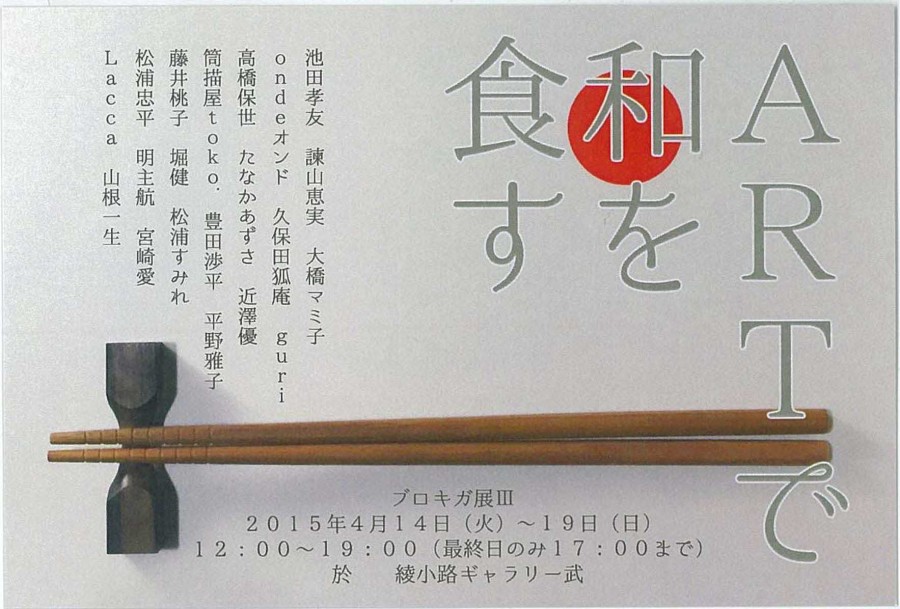 ARTで
和を
食す
池田孝友　諫山恵実　大橋マミ子
ondeオンド　久保田狐庵　guri
高橋保世　たなかあずさ　近澤優
筒描屋toko.　豊田渉平　平野雅子
藤井桃子　堀健　松浦すみれ
松浦忠平　明主航　宮崎愛
Lacca　山根一生
ブロキガ展Ⅲ
２０１５年４月１４日（火）～１９日（日）
１２：００～１９：００（最終日のみ１７：００まで）
於　　綾小路ギャラリー武